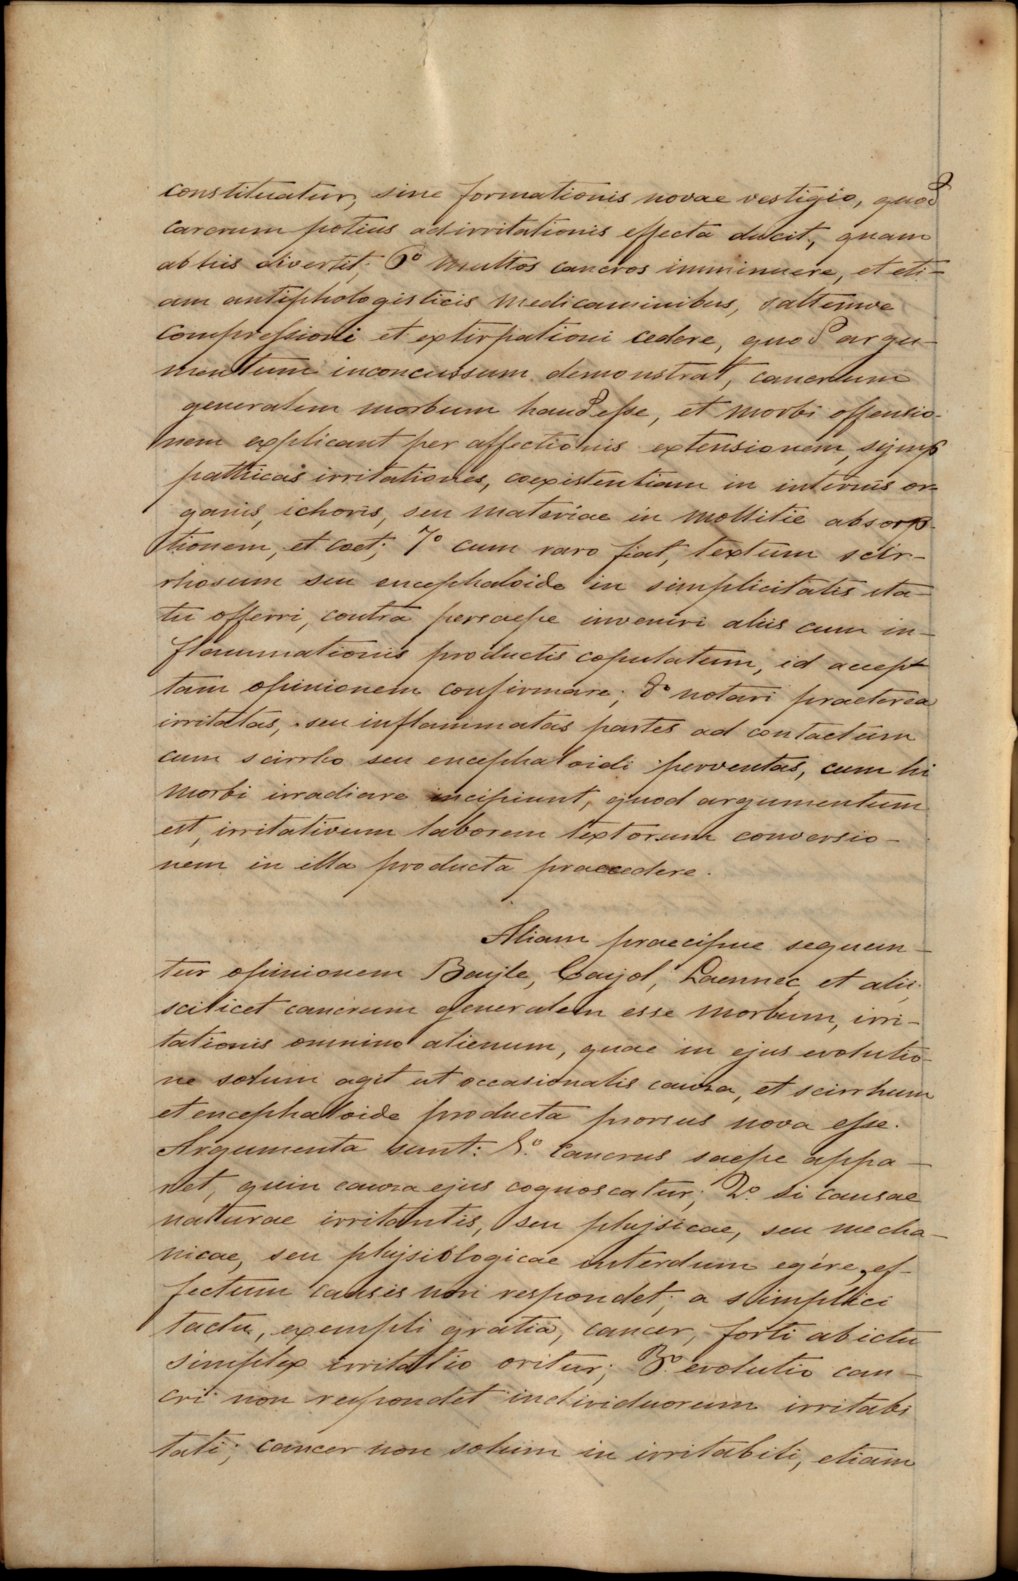 constituatur, sine formationis novae vestigio, quod
carcrum potius ad irritationis effecta ducit, quam
ab his divertit; 6º multos cancros imminuere, et eti-
am antiphologisticis medicaminibus, saltemve
compressioni et extirpationi cedere, quod argu-
mentum inconcussum demonstrat, cancrum
generalem morbum haud esse, et morbi offensio-
nem explicant per affectionis extensionem, symp
pathicas irritationes, coexistentiam in internis or-
ganis, ichoris, seu materiae in mollitie absorp-
tionem, et coet; 7º cum raro fiat, textum scir-
rhosum seu encephaloide in simplicitatis sta-
tu offerri, contra persaepe inveniri aliis cum in-
flammationis productis copulatum, id accep-
tam opinionem confirmare; 8º notari praeterea
irritatas, seu inflammatas partes ad contactum
cum scirrho seu encephaloidi perventas, cum hi
morbi irradiare incipiunt, quod argumentum
est, irritativum laborem textorum conversio-
nem in illa producta praecedere.
Aliam praecipue sequun-
tur opinionem Bayle, Cayol, Laennec, et alii,
scilicet cancrum generalem esse morbum, irri-
tationis omnino alienum, quae in ejus evolutio-
ne solum agit ut occasionalis causa, et scirrhum
et encephaloide producta prorsus nova esse.
Argumenta sunt: 1º cancrus saepe appa-
ret, quin causa ejus cognoscatur; 2º si causae
naturae irritantis, seu physicae, seu mecha-
nicae, seu physiologicae interdum egére, ef-
fectum causis non respondet; a simplici
tactu, exempli gratia, cancer, forti ab ictu
simplex irritatio oritur; 3º evolutio can-
cri non respondet individuorum irritabi
tati; cancer non solum in irritabili, etiam